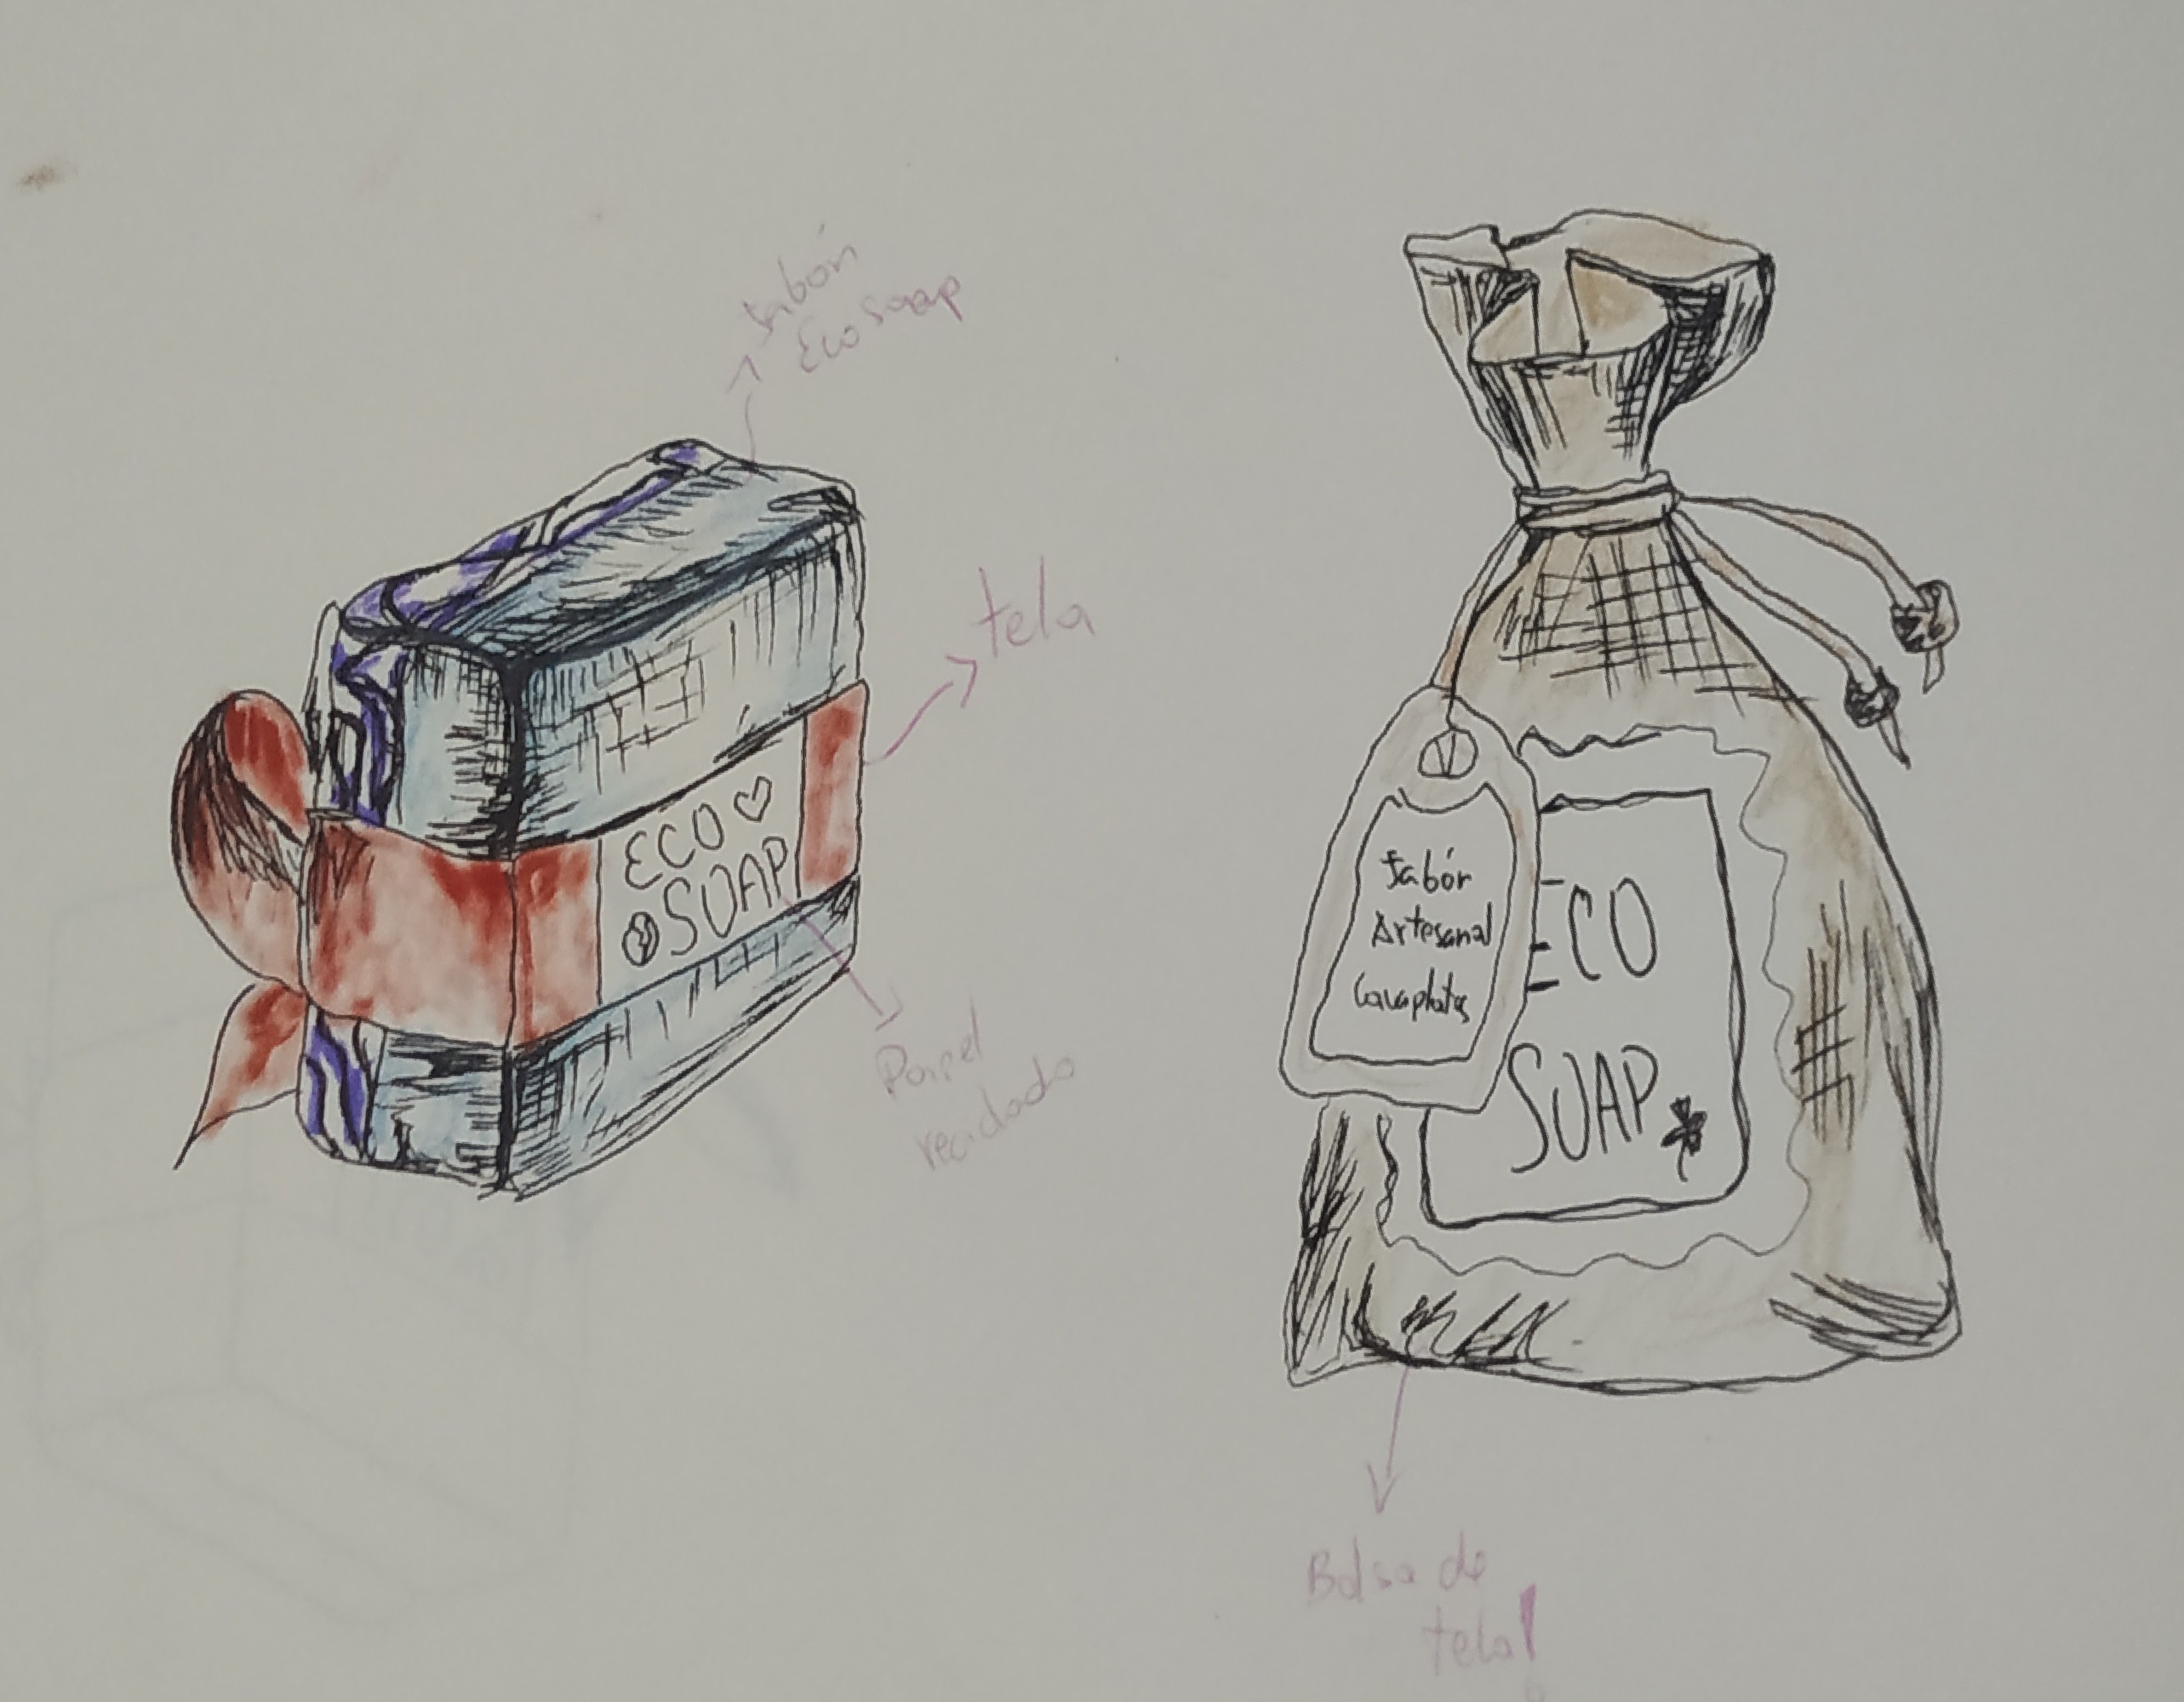 Jabón
Eco soap
tela
ECO
SOAP
Papel
reciclado
Jabón
Artesanal
Lavaplatos
ECO
SOAP
Bolsa de
tela!